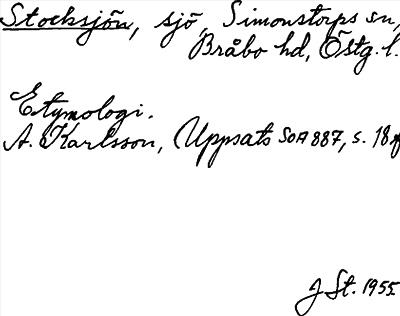 Stocksjön, sjö, Simonstorps sn,
Bråbo hd, Östg. l.
Etymologi.
A. Karlsson, Uppsats SOA 887, s. 18 f
J St. 1955.